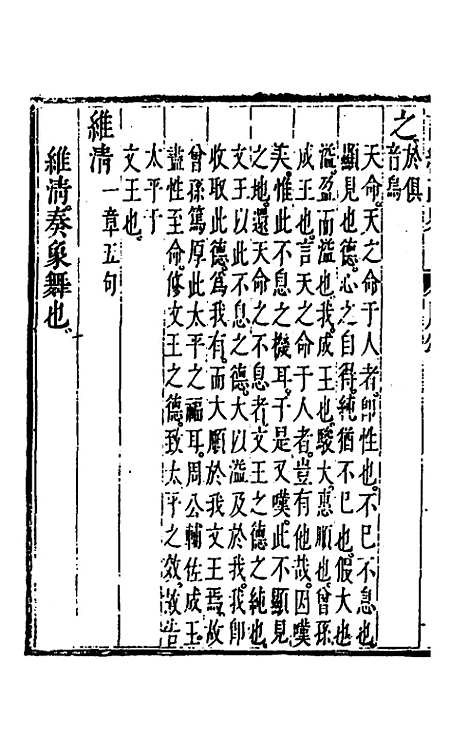 之於俱音烏
天命天之命于人者即性也不已不息也
顯見也德心之自得純猶不已也假大也
溢盈而溢也我成王也駿大惠順也曾孫
成王也言天之命于人者豈有他哉因嘆
美惟此不息之機耳于是又嘆此不顯見
之地還天命之不息者文王之德之純也
文王以此不息之德大以溢及於我我即
收取此德爲我有而大順於我文王焉故
曾孫篤厚此太平之福耳周公輔佐成王
盡性至命修文王之德致太平之效故告
太平于
文王也
維清一章五句
維清奏象舞也